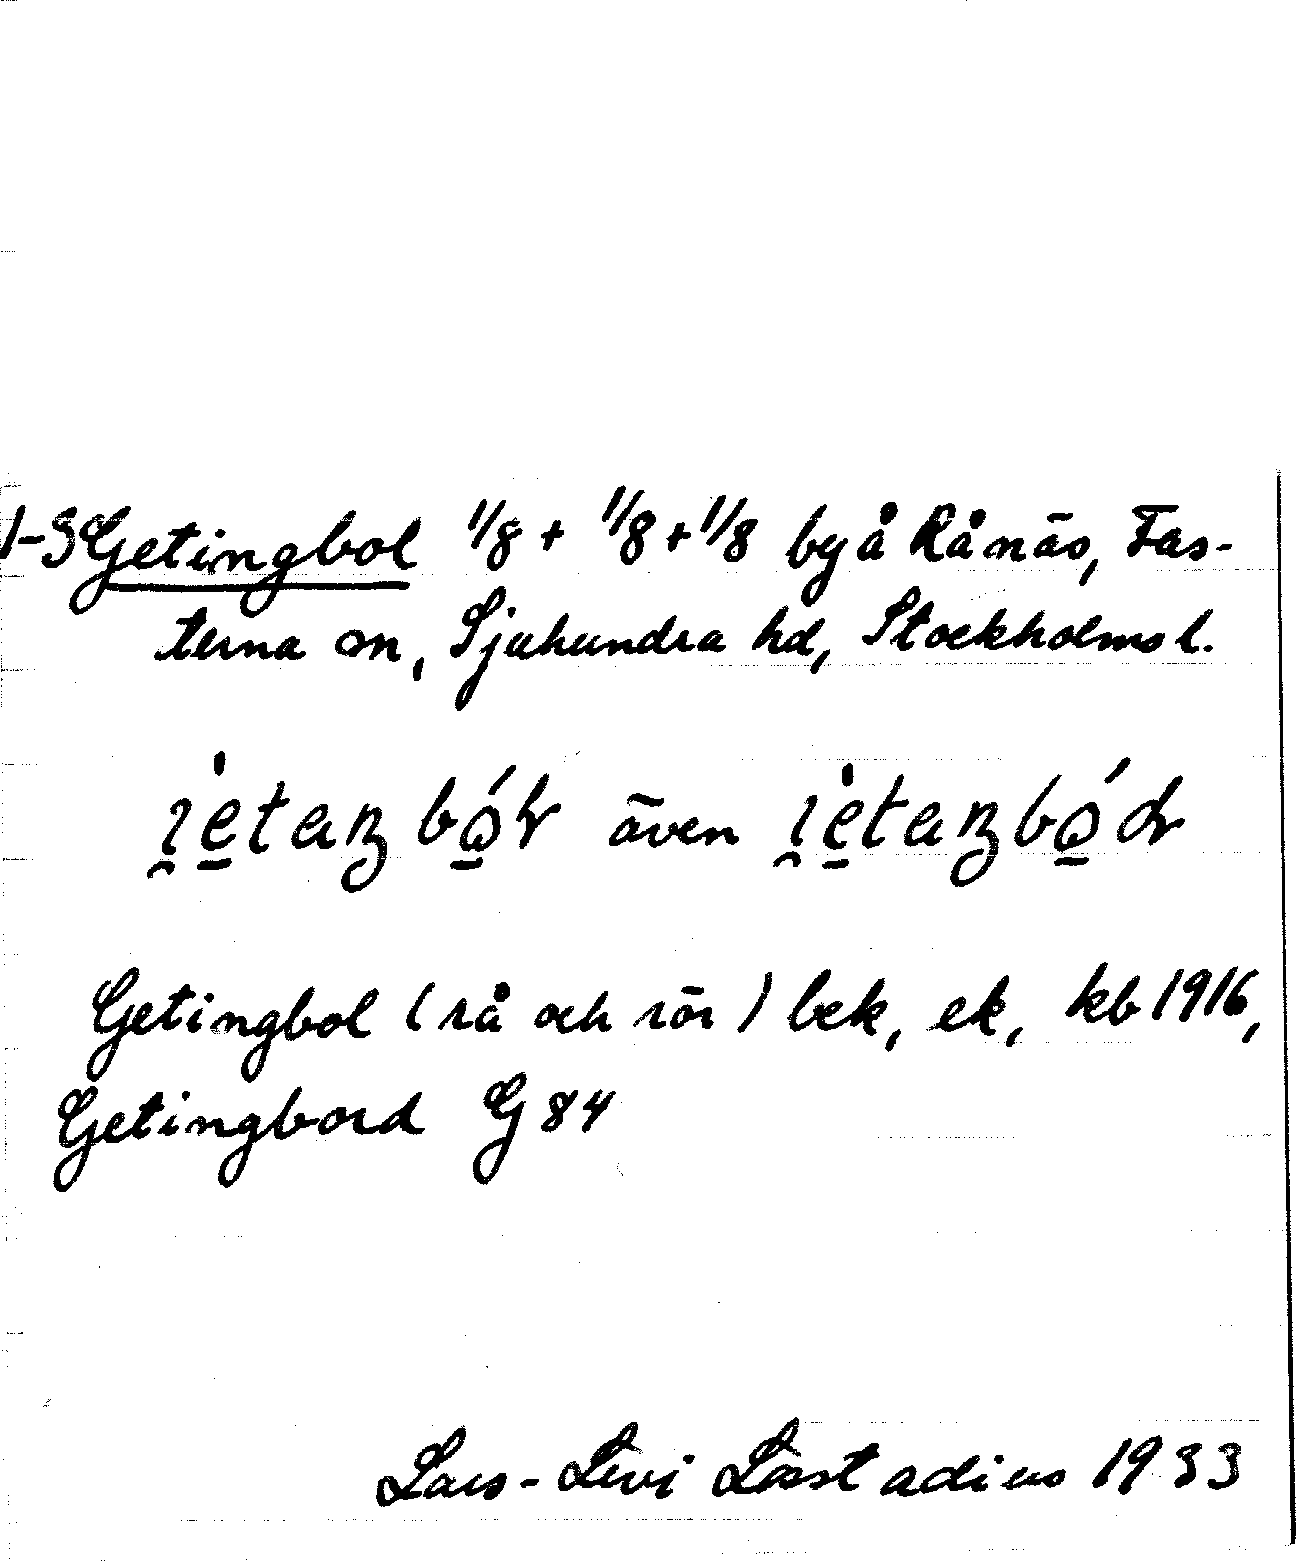 1-3 Getingbol 1/8 + 1/8 + 1/8 by å Rånäs, Fas-
terna sn, Sjuhundra hd, Stockholms l.
även
Getingbol (rå och rör) bek, ek, kb 1916,
Getingbord G 84
Lars-Levi Læstadius 1933